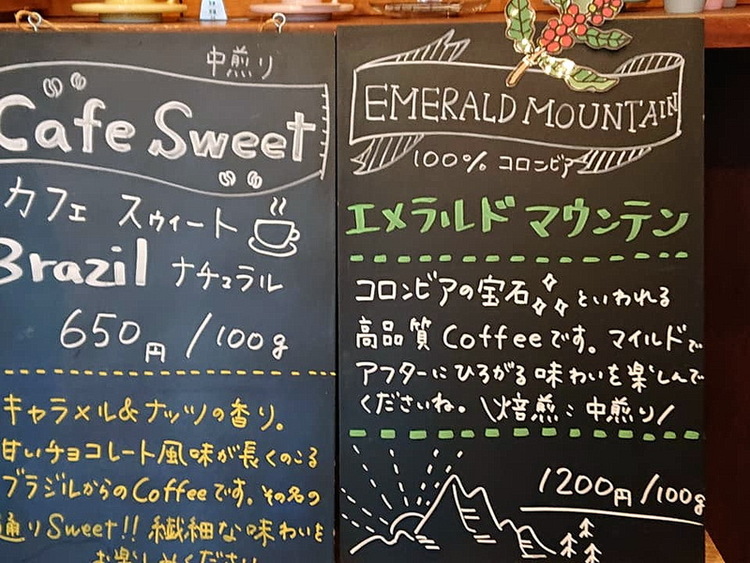 中煎り
Cafe Sweet
カフェ スウィート
Brazil ナチュラル
650円/100g
キャラメル&ナッツの香り。
甘いチョコレート風味が長くのこる
ブラジルからのCoffeeです。その名の
通りSweet!! 繊細な味わいを
お楽しみください
EMERALD MOUNTAIN
100% コロンビア
エメラルド マウンテン
コロンビアの宝石といわれる
高品質Coffeeです。マイルドで
アフターにひろがる味わいを楽しんで
くださいね。\焙煎:中煎り/
1200円/100g